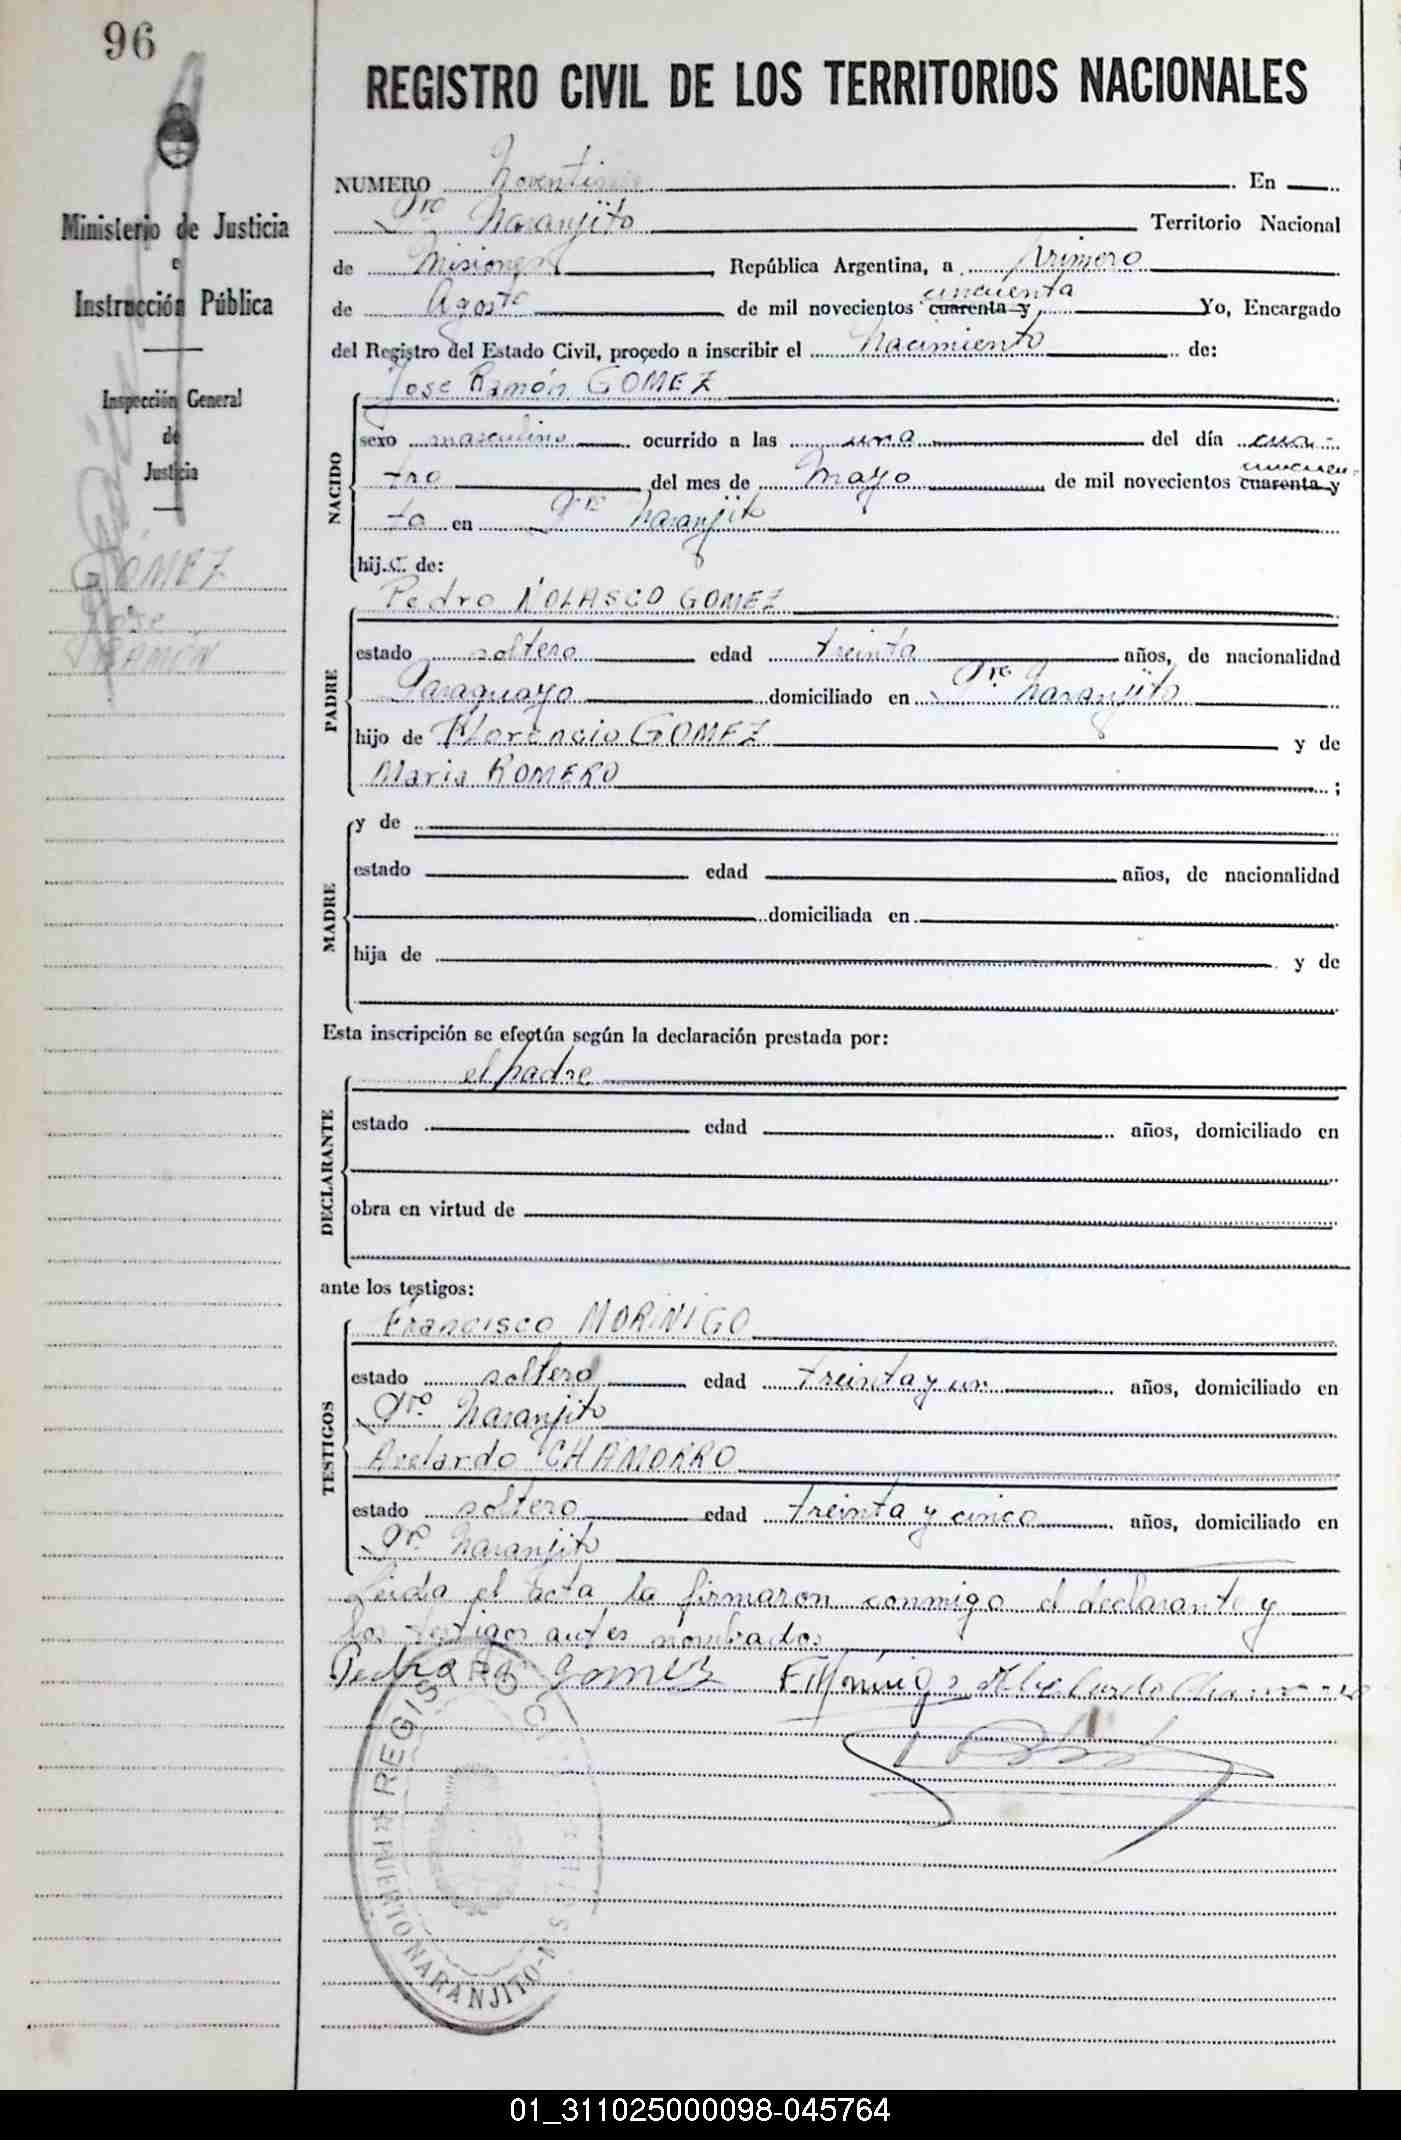 96
REGISTRO CIVIL DE LOS TERRITORIOS NACIONALES
Ministerio de Justicia
e
Instrucción Pública
Inspección General
de
Justicia
GÓMEZ
José
RAMÓN
NUMERO En
Pto Naranjito Territorio Nacional
de Misiones República Argentina, a primero
de Agosto de mil novecientos cuarenta y cincuenta Yo, Encargado
del Registro del Estado Civil, procedo a inscribir el Nacimiento de:
NACIDO
José Ramón GOMEZ
sexo masculino ocurrido a las una del día cua-
tro del mes de Mayo de mil novecientos cuarenta y cincuen-
ta en Pto Naranjito
hij.o. de:
PADRE
Pedro NOLASCO GOMEZ
estado soltero edad treinta años, de nacionalidad
Paraguayo domiciliado en Pto Naranjito
hijo de Florencio GOMEZ y de
Maria ROMERO ;
MADRE
y de
estado edad años, de nacionalidad
domiciliada en
hija de y de
Esta inscripción se efectúa según la declaración prestada por:
DECLARANTE
el padre
estado edad años, domiciliado en
obra en virtud de
ante los testigos:
TESTIGOS
Francisco MORINIGO
estado soltero edad treinta y un años, domiciliado en
Pto. Naranjito
Avelardo CHAMORRO
estado soltero edad treinta y cinco años, domiciliado en
Pto. Naranjito
Leida el acta la firmaron conmigo el declarante y
los testigos antes nombrados
Pedro Gomez F Moriñigo Abelardo Chamorro
REGISTRO CIVIL
PUERTO NARANJITO - MISIONES
01_311025000098-045764